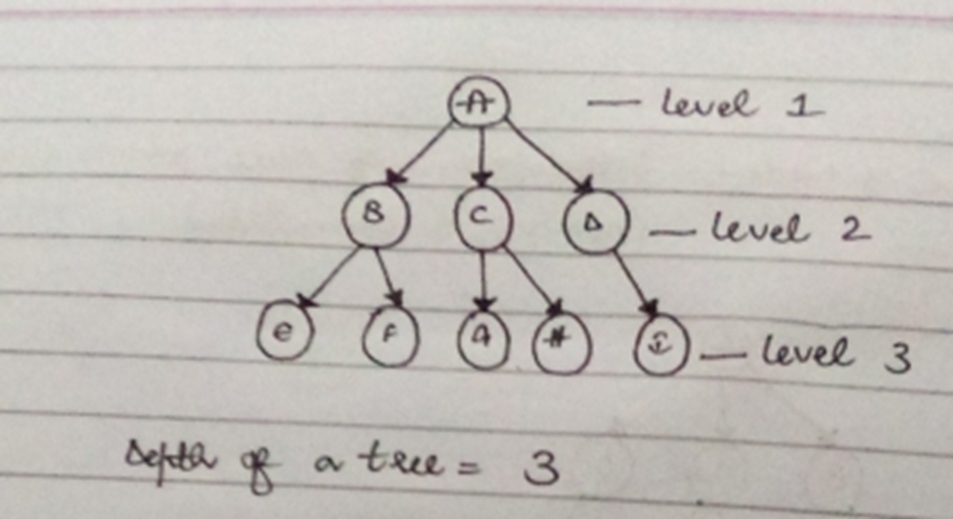 A — level 1
B C D — level 2
e F G H I — level 3
Depth of a tree = 3